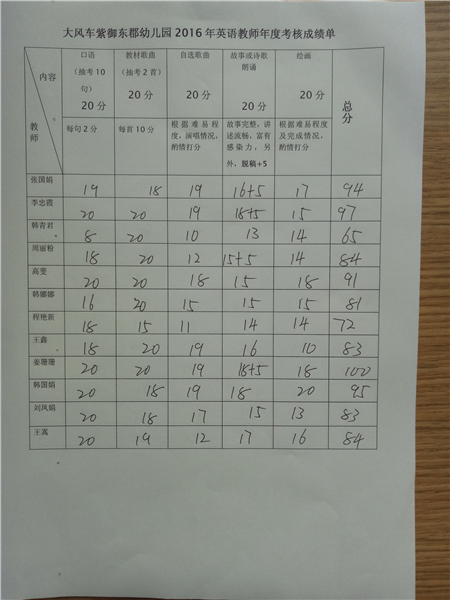 大风车紫御东郡幼儿园 2016 年英语教师年度考核成绩单
内容
教师
口语
（抽考 10
句）
20 分
每句 2 分
教材歌曲
（抽考 2 首）
20 分
每首 10 分
自选歌曲
20 分
根据难易程
度，演唱情况，
酌情打分
故事或诗歌
朗诵
20 分
故事完整，讲
述流畅，富有
感染力，另
外，脱稿+5
绘画
20 分
根据难易程度
及完成情况，
酌情打分
总
分
张国娟 19 18 19 16+5 17 94
李忠霞 20 20 19 18+5 15 97
韩青君 8 20 10 13 14 65
周丽粉 18 20 12 15+5 14 84
高雯 20 20 18 15 18 91
韩娜娜 16 20 15 15 15 81
程艳新 18 15 11 14 14 72
王鑫 18 20 19 16 10 83
姜珊珊 20 20 19 18+5 18 100
韩国娟 20 18 19 18 20 95
刘凤娟 20 18 17 15 13 83
王嵩 20 19 12 17 16 84